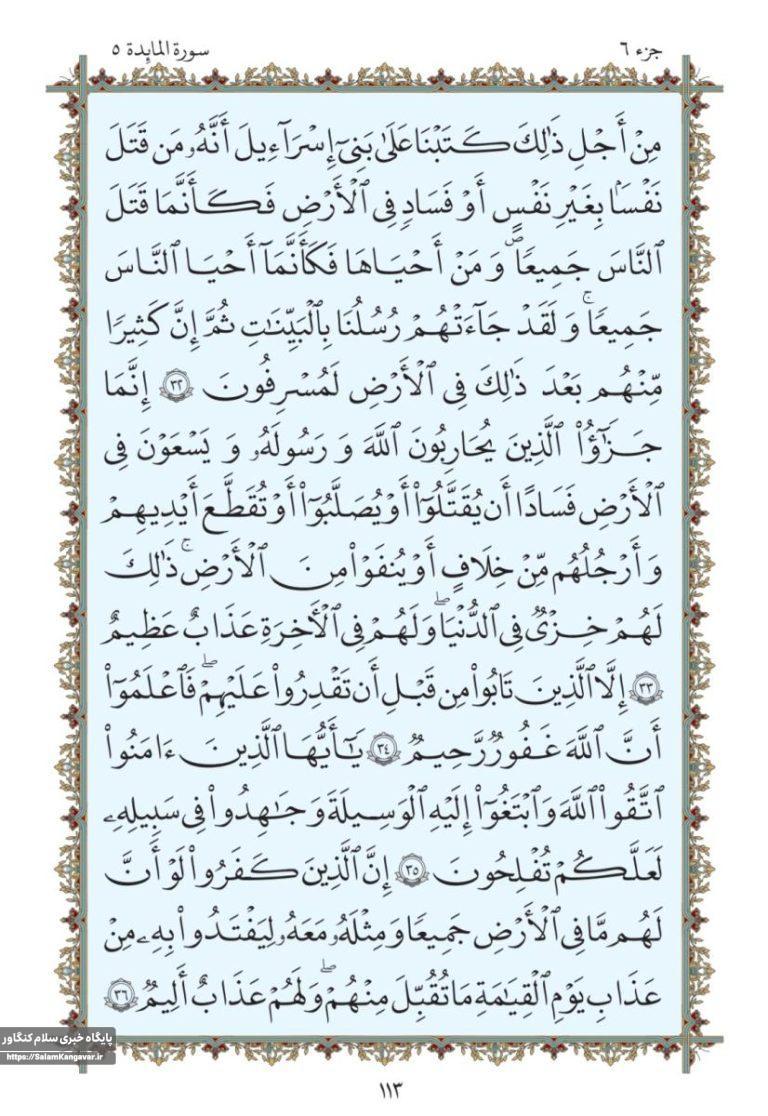 جزء ٦
سورة المايدة ٥
مِنْ أَجْلِ ذَٰلِكَ كَتَبْنَا عَلَىٰ بَنِىٓ إِسْرَآءِيلَ أَنَّهُۥ مَن قَتَلَ
نَفْسَۢا بِغَيْرِ نَفْسٍ أَوْ فَسَادٍ فِى ٱلْأَرْضِ فَكَأَنَّمَا قَتَلَ
ٱلنَّاسَ جَمِيعًاۖ وَ مَنْ أَحْيَاهَا فَكَأَنَّمَآ أَحْيَا ٱلنَّاسَ
جَمِيعًاۚ وَ لَقَدْ جَآءَتْهُمْ رُسُلُنَا بِٱلْبَيِّنَٰتِ ثُمَّ إِنَّ كَثِيرًا
مِّنْهُم بَعْدَ ذَٰلِكَ فِى ٱلْأَرْضِ لَمُسْرِفُونَ ٣٢ إِنَّمَا
جَزَٰٓؤُا۟ ٱلَّذِينَ يُحَارِبُونَ ٱللَّهَ وَ رَسُولَهُۥ وَ يَسْعَوْنَ فِى
ٱلْأَرْضِ فَسَادًا أَن يُقَتَّلُوٓا۟ أَوْ يُصَلَّبُوٓا۟ أَوْ تُقَطَّعَ أَيْدِيهِمْ
وَ أَرْجُلُهُم مِّنْ خِلَافٍ أَوْ يُنفَوْا۟ مِنَ ٱلْأَرْضِۚ ذَٰلِكَ
لَهُمْ خِزْىٌ فِى ٱلدُّنْيَاۖ وَلَهُمْ فِى ٱلْأَخِرَةِ عَذَابٌ عَظِيمٌ
٣٣ إِلَّا ٱلَّذِينَ تَابُوا۟ مِن قَبْلِ أَن تَقْدِرُوا۟ عَلَيْهِمْۖ فَٱعْلَمُوٓا۟
أَنَّ ٱللَّهَ غَفُورٌ رَّحِيمٌ ٣٤ يَٰٓأَيُّهَا ٱلَّذِينَ ءَامَنُوا۟
ٱتَّقُوا۟ ٱللَّهَ وَٱبْتَغُوٓا۟ إِلَيْهِ ٱلْوَسِيلَةَ وَجَٰهِدُوا۟ فِى سَبِيلِهِۦ
لَعَلَّكُمْ تُفْلِحُونَ ٣٥ إِنَّ ٱلَّذِينَ كَفَرُوا۟ لَوْ أَنَّ
لَهُم مَّا فِى ٱلْأَرْضِ جَمِيعًا وَ مِثْلَهُۥ مَعَهُۥ لِيَفْتَدُوا۟ بِهِۦ مِنْ
عَذَابِ يَوْمِ ٱلْقِيَٰمَةِ مَا تُقُبِّلَ مِنْهُمْۖ وَلَهُمْ عَذَابٌ أَلِيمٌ ٣٦
پایگاه خبری سلام کنگاور
https://SalamKangavar.ir
١١٣